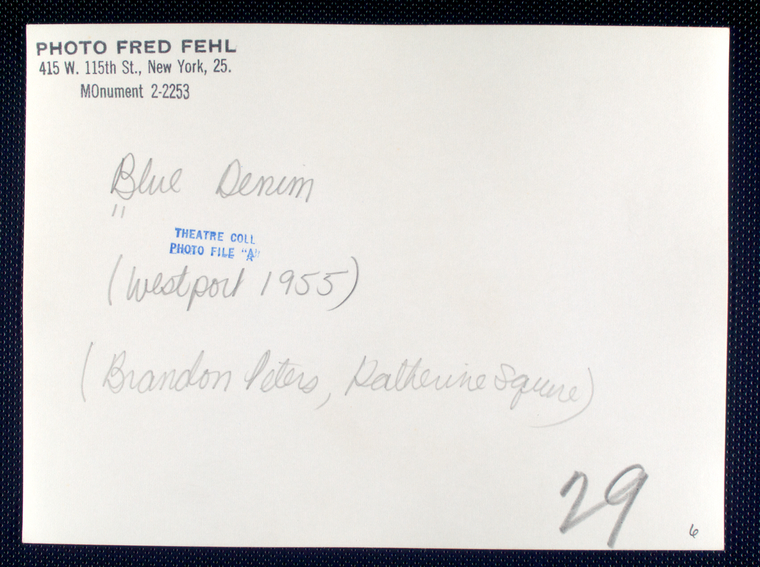 PHOTO FRED FEHL
415 W. 115th St., New York, 25.
MOnument 2-2253
Blue Denim
"
THEATRE COLL
PHOTO FILE "A"
(Westport 1955)
(Brandon Peters, Katherine Squire)
29
6